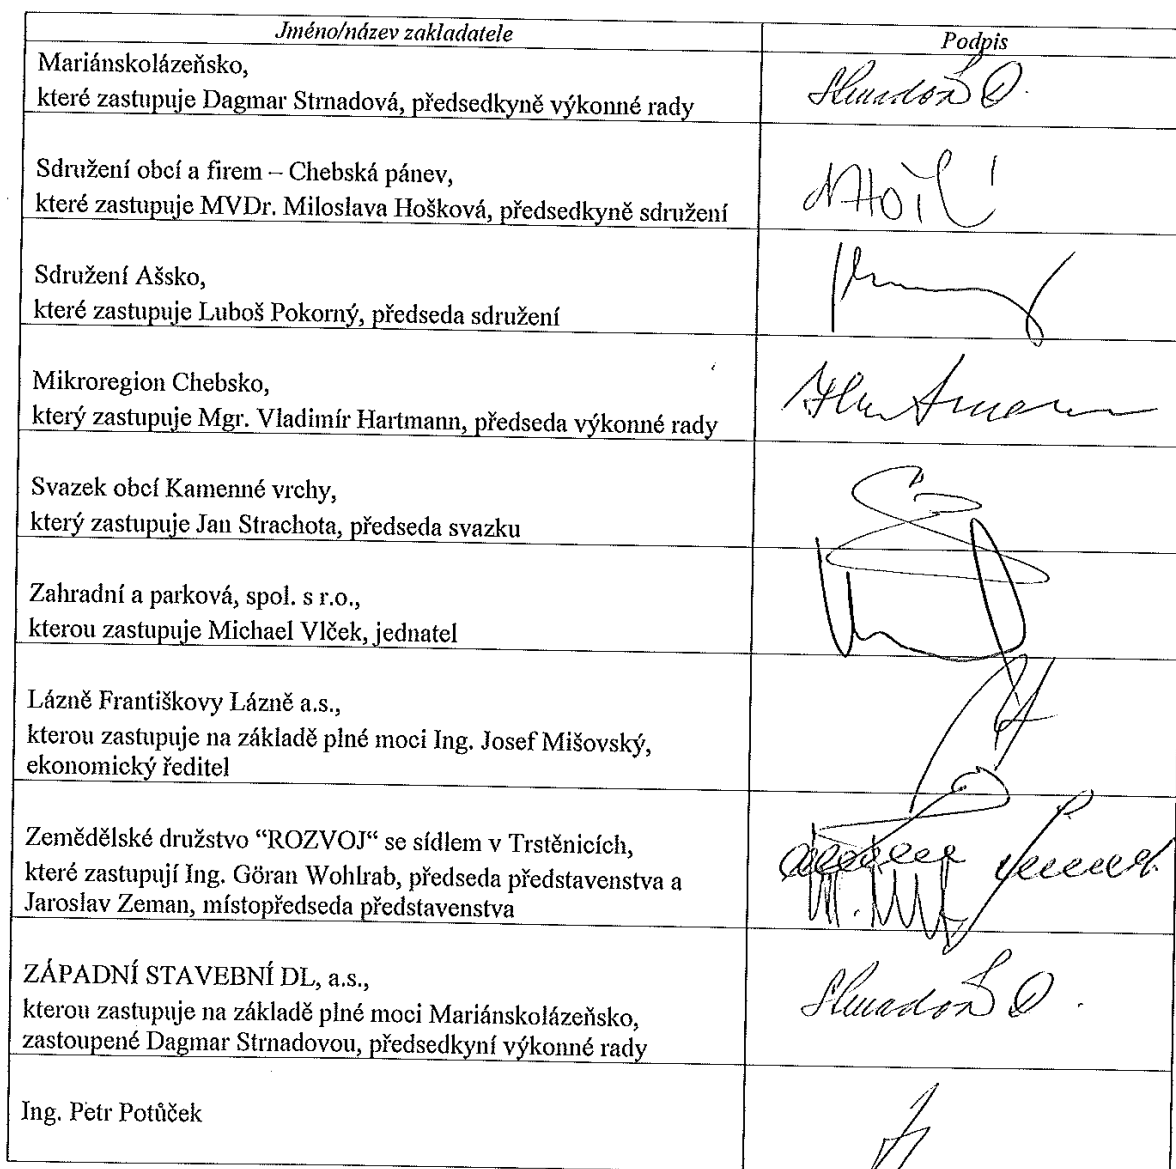 Jméno/název zakladatele
Podpis
Mariánskolázeňsko,
které zastupuje Dagmar Strnadová, předsedkyně výkonné rady
Sdružení obcí a firem – Chebská pánev,
které zastupuje MVDr. Miloslava Hošková, předsedkyně sdružení
Sdružení Ašsko,
které zastupuje Luboš Pokorný, předseda sdružení
Mikroregion Chebsko,
který zastupuje Mgr. Vladimír Hartmann, předseda výkonné rady
Svazek obcí Kamenné vrchy,
který zastupuje Jan Strachota, předseda svazku
Zahradní a parková, spol. s r.o.,
kterou zastupuje Michael Vlček, jednatel
Lázně Františkovy Lázně a.s.,
kterou zastupuje na základě plné moci Ing. Josef Mišovský,
ekonomický ředitel
Zemědělské družstvo “ROZVOJ“ se sídlem v Trstěnicích,
které zastupují Ing. Göran Wohlrab, předseda představenstva a
Jaroslav Zeman, místopředseda představenstva
ZÁPADNÍ STAVEBNÍ DL, a.s.,
kterou zastupuje na základě plné moci Mariánskolázeňsko,
zastoupené Dagmar Strnadovou, předsedkyní výkonné rady
Ing. Petr Potůček